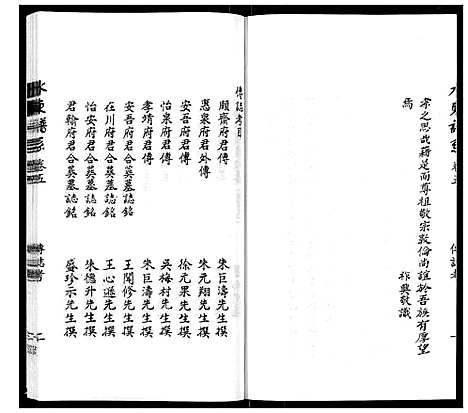 孝之思此籍是而尊祖敬宗敦倫尚誼於吾族有厚望
焉
祚興敬識
傳誌考目
順齋府君傳 朱巨濤先生撰
愚泉府君外傳 朱元翔先生撰
怡泉府君傳 徐元果先生撰
安吾府君傳 吳梅村先生撰
孝靖府君傳 朱巨濤先生撰
安吾府君合葬墓誌銘 王聞修先生撰
在川府君合葬墓誌銘 王心逸先生撰
怡安府君合葬墓誌銘 朱德升先生撰
君翰府君合葬墓誌銘 盛珍示先生撰
卷五
傳誌考